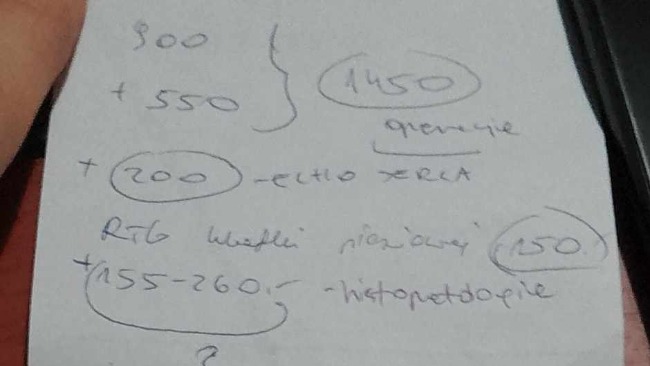 900
+ 550 } 1450
operacje
+ 200 - ECHO SERCA
RTG klatki piersiowej 150.
+ 155-260.- - histopatologie
?